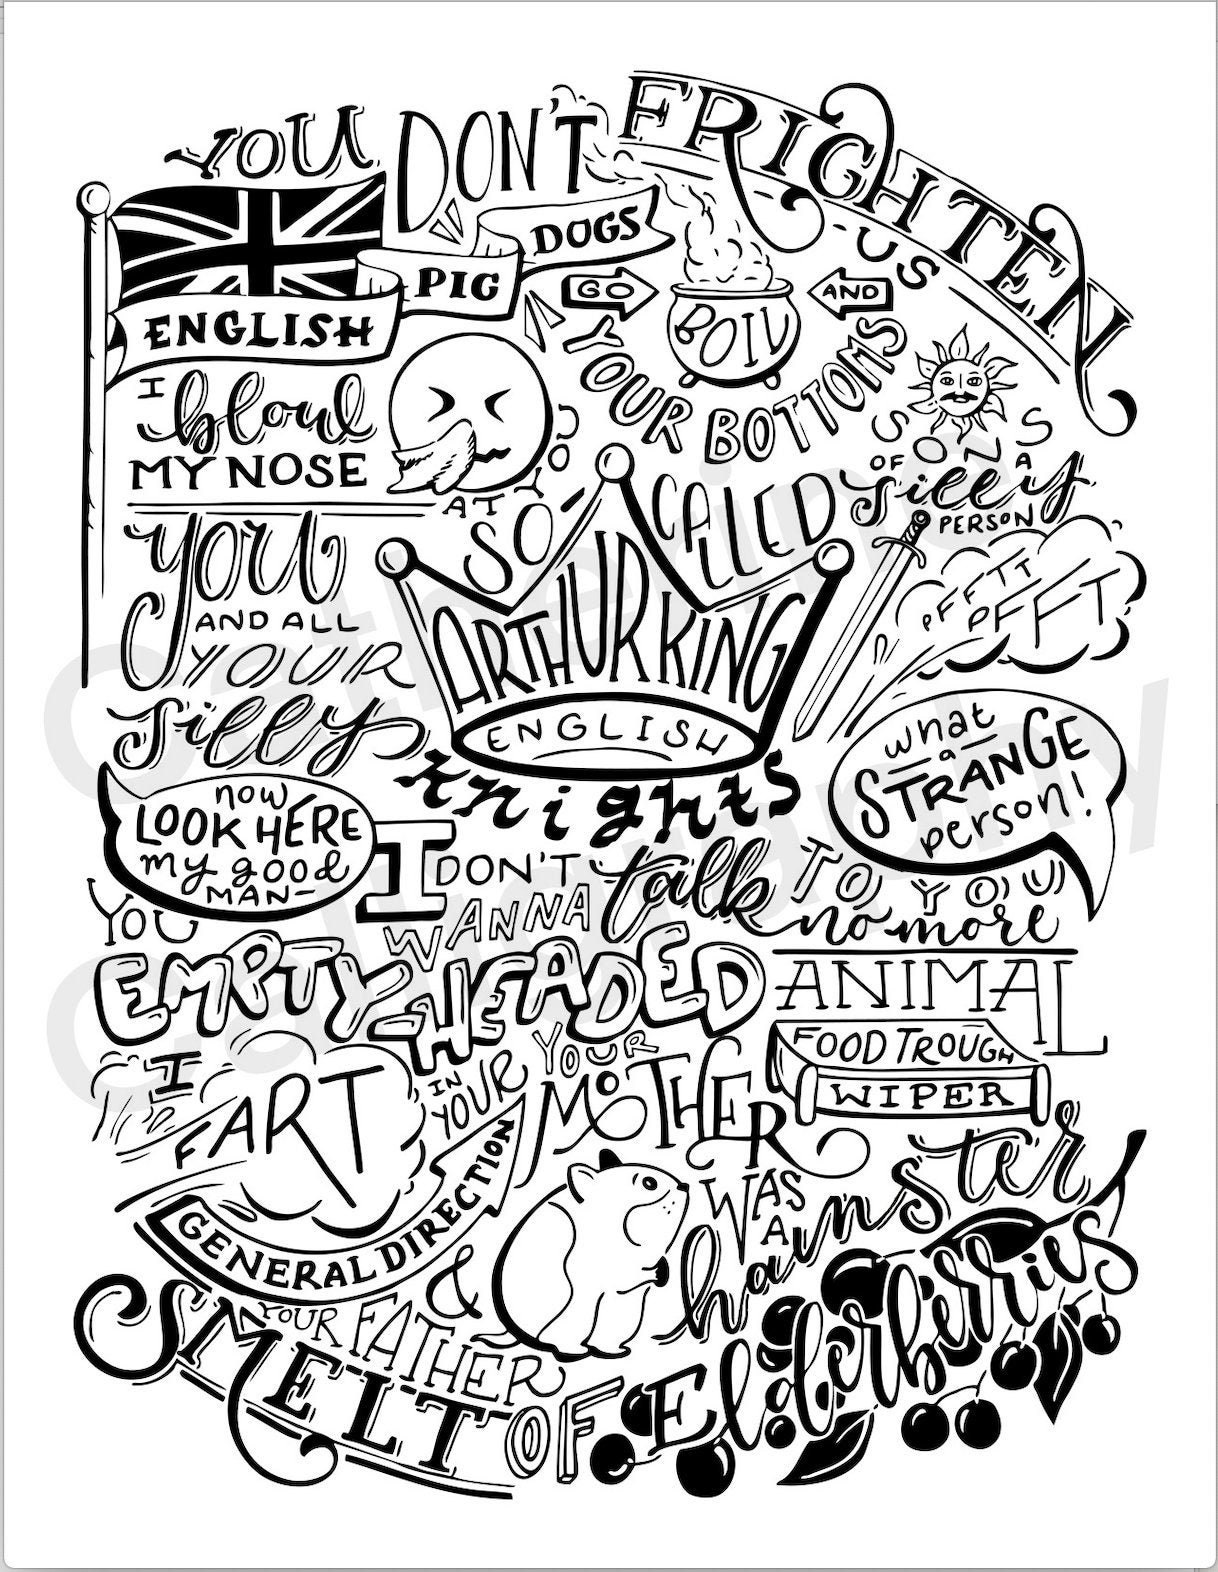 YOU DON'T FRIGHTEN
US
ENGLISH PIG DOGS
GO AND
BOIL
YOUR BOTTOMS
SONS
OF A
silly
PERSON
I
blow
MY NOSE
AT YOU
SO CALLED
ARTHUR KING
YOU
AND ALL
YOUR
silly
ENGLISH
knights
PFFTT
PFFT
what
a
STRANGE
person!
now
LOOK HERE
my good
MAN-
I DON'T
WANNA talk TO YOU
no more
YOU
EMPTY-HEADED
ANIMAL
FOOD TROUGH
WIPER
I
FART
IN
YOUR
GENERAL DIRECTION
YOUR
MOTHER
WAS
A
hamster
&
YOUR FATHER
SMELT OF Elderberries
Catherine
Calligraphy